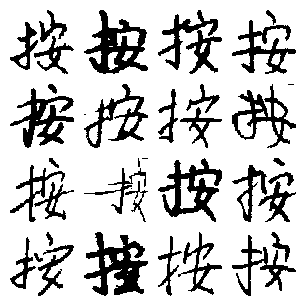 按按按按
按按按按
按按按按
按按按按